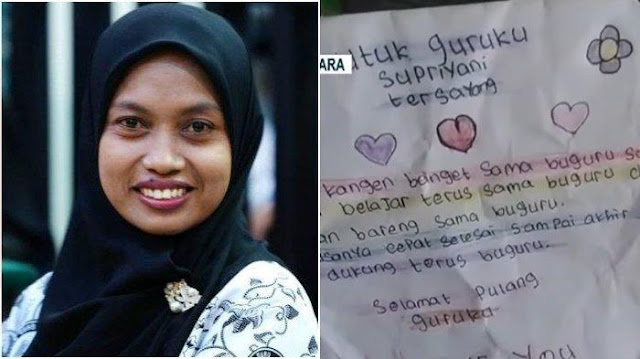 ntuk guruku
ARA
Supriyani
tersayang
kangen banget sama buguru sa
belajar terus sama buguru d
an bareng sama buguru.
sanya cepat selesai sampai akhir
dukung terus buguru.
Selamat pulang
guruku